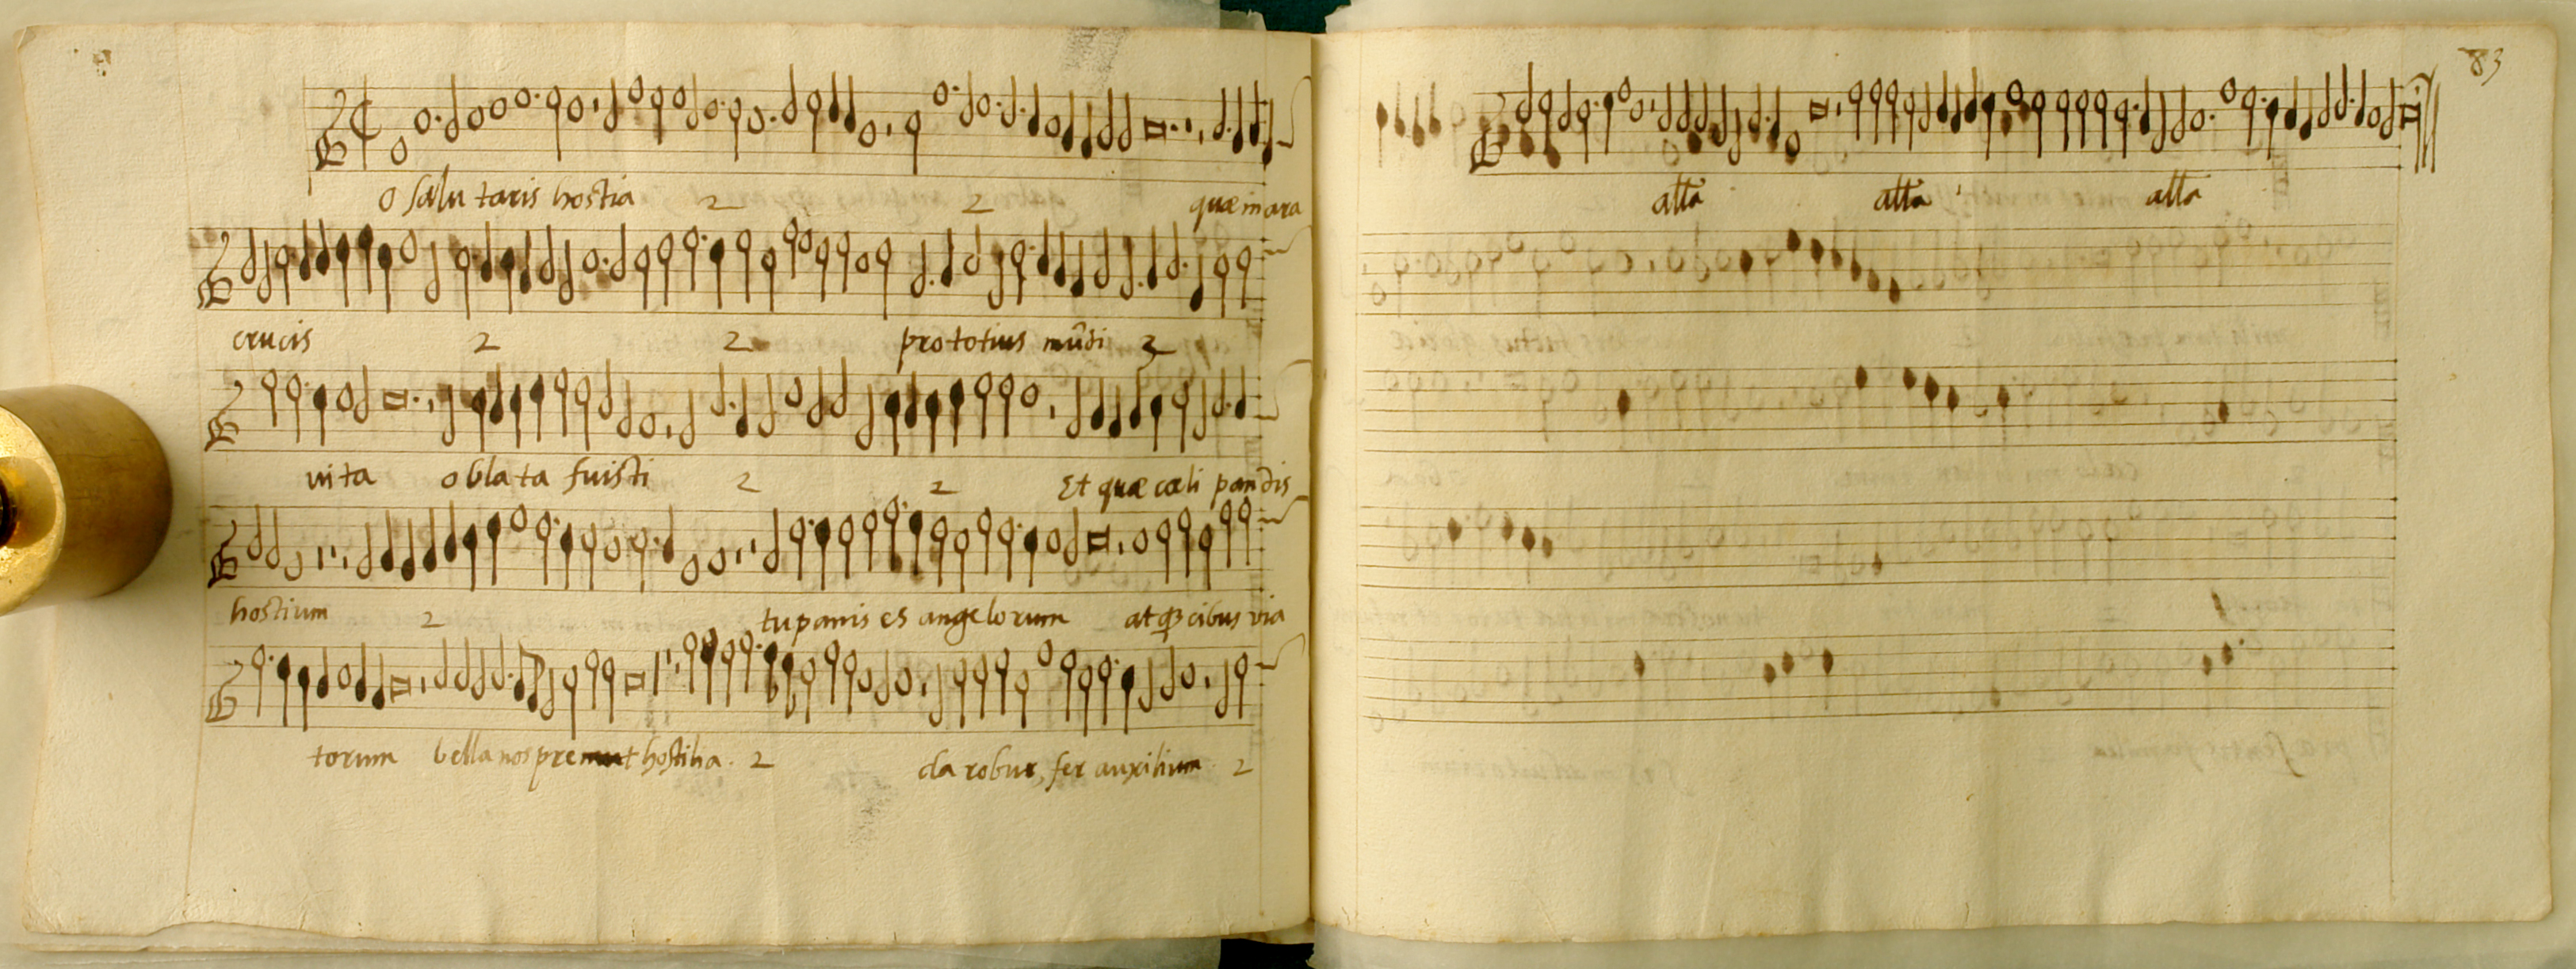 O salu taris hostia 2 2 quæ in ara
crucis 2 2 pro totius mūdi 2
vita oblata fuisti 2 2 Et quæ cæli pandis
hostium 2 tu panis es angelorum atq3 cibus via
torum bella nos premut hostilia. 2 da robur, fer auxilium 2
83
alla alla alla